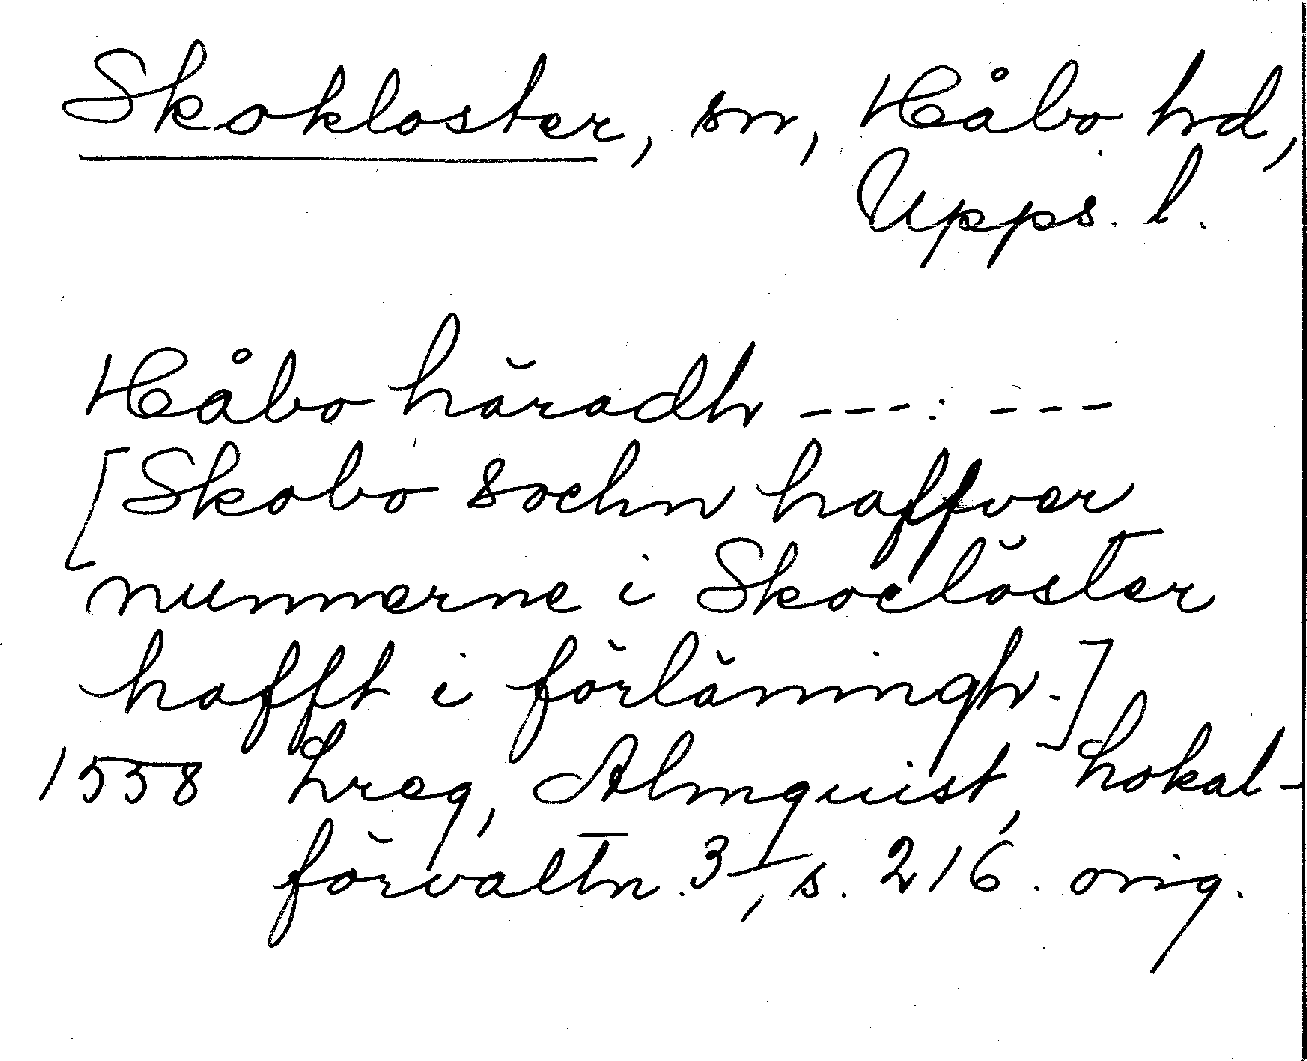 Skokloster, sn, Håbo hd,
Upps. l.
Håbo häradh ---:---
[Skobo sochn haffver
nunnerne i Skoclöster
hafft i förläningh.]
1558 Lreg, Almquist, Lokal-
förvaltn. 3, s. 216. orig.